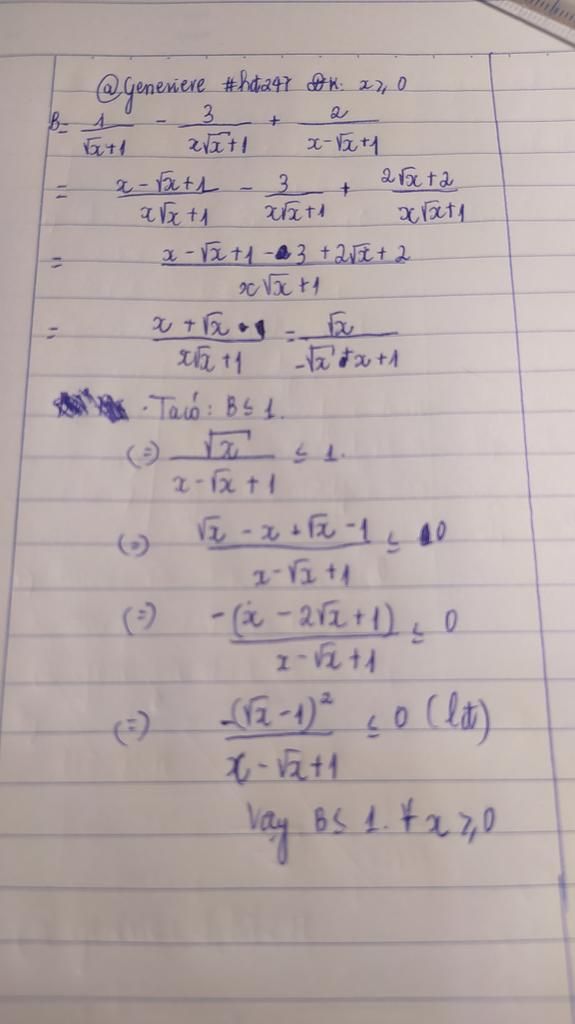 @Genevieve #hdt247 ĐK: x ≥ 0
B = 1/(√x+1) - 3/(x√x+1) + 2/(x-√x+1)
= (x-√x+1)/(x√x+1) - 3/(x√x+1) + (2√x+2)/(x√x+1)
= (x-√x+1-3+2√x+2)/(x√x+1)
= (x+√x)/(x√x+1) = √x/(-√x+x+1)
. Ta có: B ≤ 1.
(=) √x/(x-√x+1) ≤ 1.
(=) (√x-x+√x-1)/(x-√x+1) ≤ 0
(=) -(x-2√x+1)/(x-√x+1) ≤ 0
(=) -(√x-1)²/(x-√x+1) ≤ 0 (lđ)
Vậy B ≤ 1. ∀ x ≥ 0